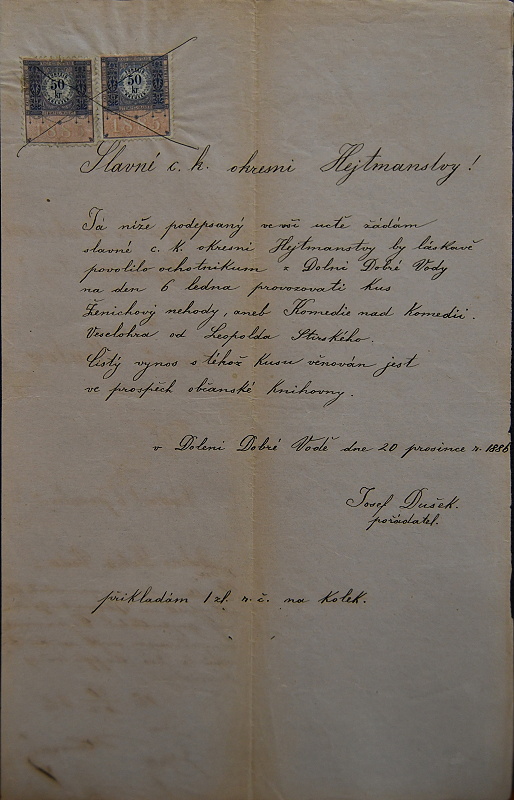 50
kr
50
kr
Slavné c. k. okresni Hejtmanstvy!
Já níže podepsaný ve vší uctě žádám
slavné c. k. okresni Hejtmanstvy by láskavě
povolilo ochotnikum z Dolni Dobré Vody
na den 6 ledna provozovati kus
Ženichový nehody, aneb Komedie nad Komedii.
Veselohra od Leopolda Stirského.
Čistý vynos s téhož Kusu věnován jest
ve prospěch občanské Knihovny.
v Doleni Dobré Vodě dne 20 prosince r. 1886
Josef Dušek.
pořadatel.
přikladám 1 zl. r. č. na kolek.